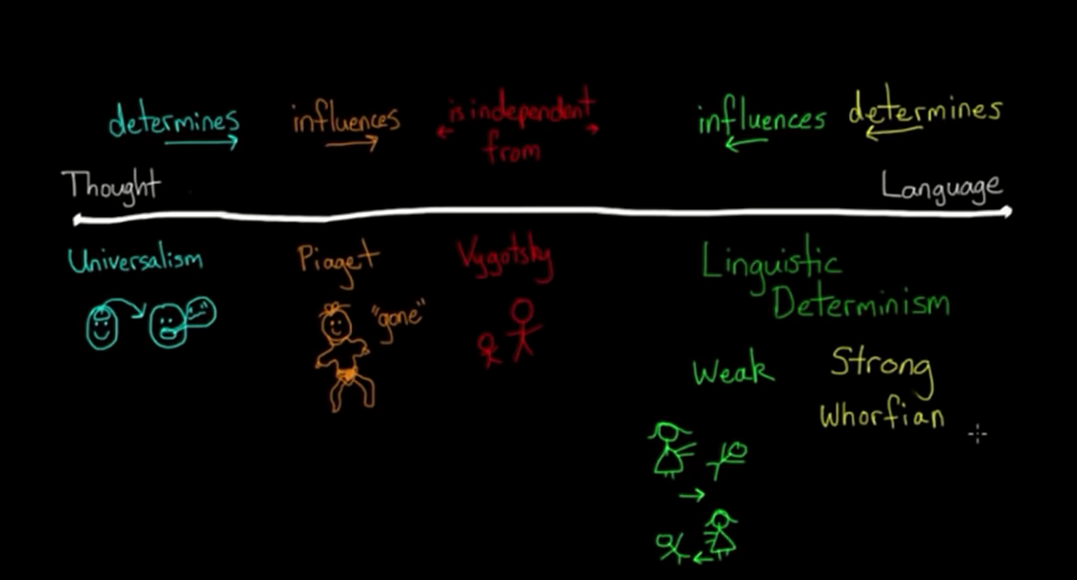 determines
influences
is independent
from
influences
determines
Thought
Language
Universalism
Piaget
Vygotsky
Linguistic
Determinism
"gone"
Weak
Strong
Whorfian